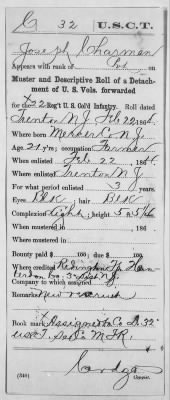 C 32 U.S.C.T.
Joseph Sharman
Appears with rank of Pvt. on
Muster and Descriptive Roll of a Detach-
ment of U. S. Vols. forwarded
for the 32 Reg't U. S. Col'd Infantry. Roll dated
Trenton N.J. Feb 22, 1864.
Where born Mercer Co N.J.
Age 21 y'rs; occupation Farmer
When enlisted Feb 22, 1864.
Where enlisted Trenton N.J.
For what period enlisted 3 years.
Eyes Blk; hair Blk
Complexion Light; height 5 ft. 5 in.
When mustered in , 186 .
Where mustered in
Bounty paid $ 100; due $ 100
Where credited
Co. N.J.
Company to which assigned
Remarks: New Recruit
Book mark: Assigned to Co 32"
U.S.C.T.
(340) Copyist.